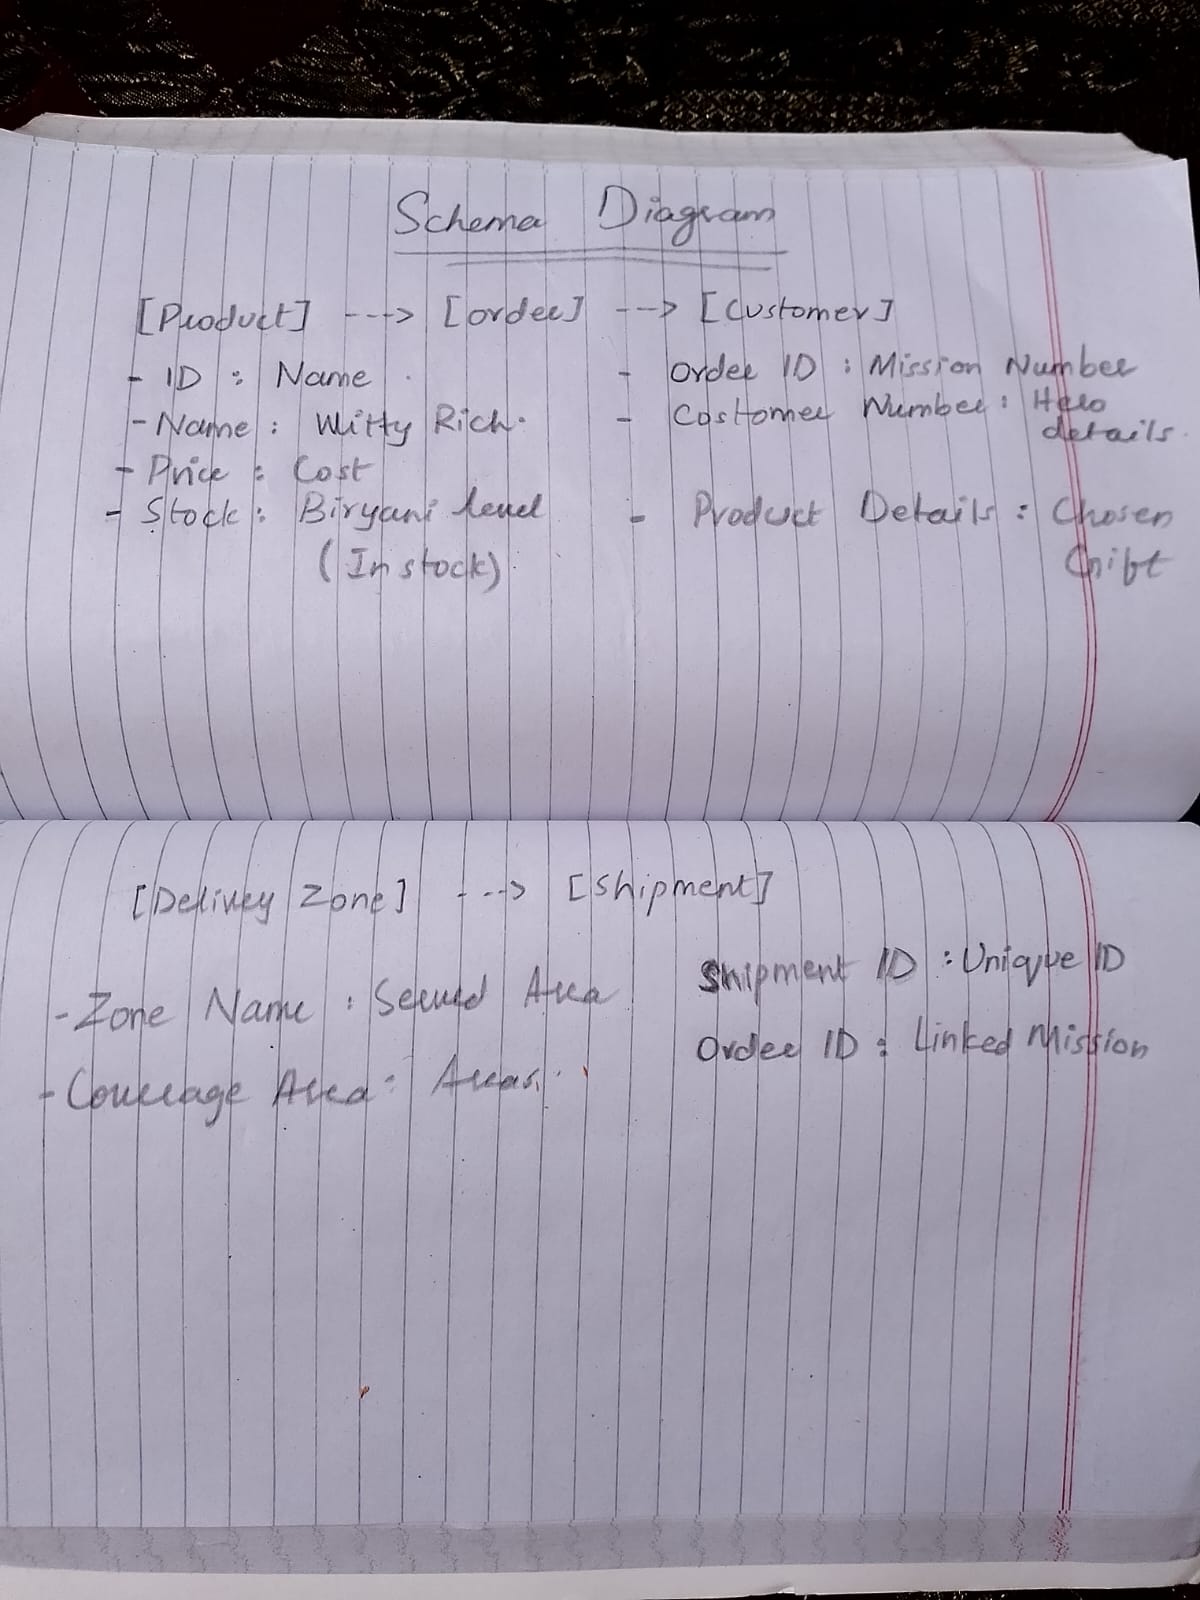 Schema Diagram
[Product] ---> [order] --> [Customer]
- ID : Name
- Name : Witty Rich.
- Price : Cost
- Stock : Biryani level
(In stock)
- Order ID : Mission Number
- Costomer Number : Hero
details.
- Product Details : Chosen
Gift
[Delivey Zone] ---> [Shipment]
- Zone Name : Served Area
- Coverage Area : Areas.
Shipment ID : Unique ID
Order ID : Linked Mission